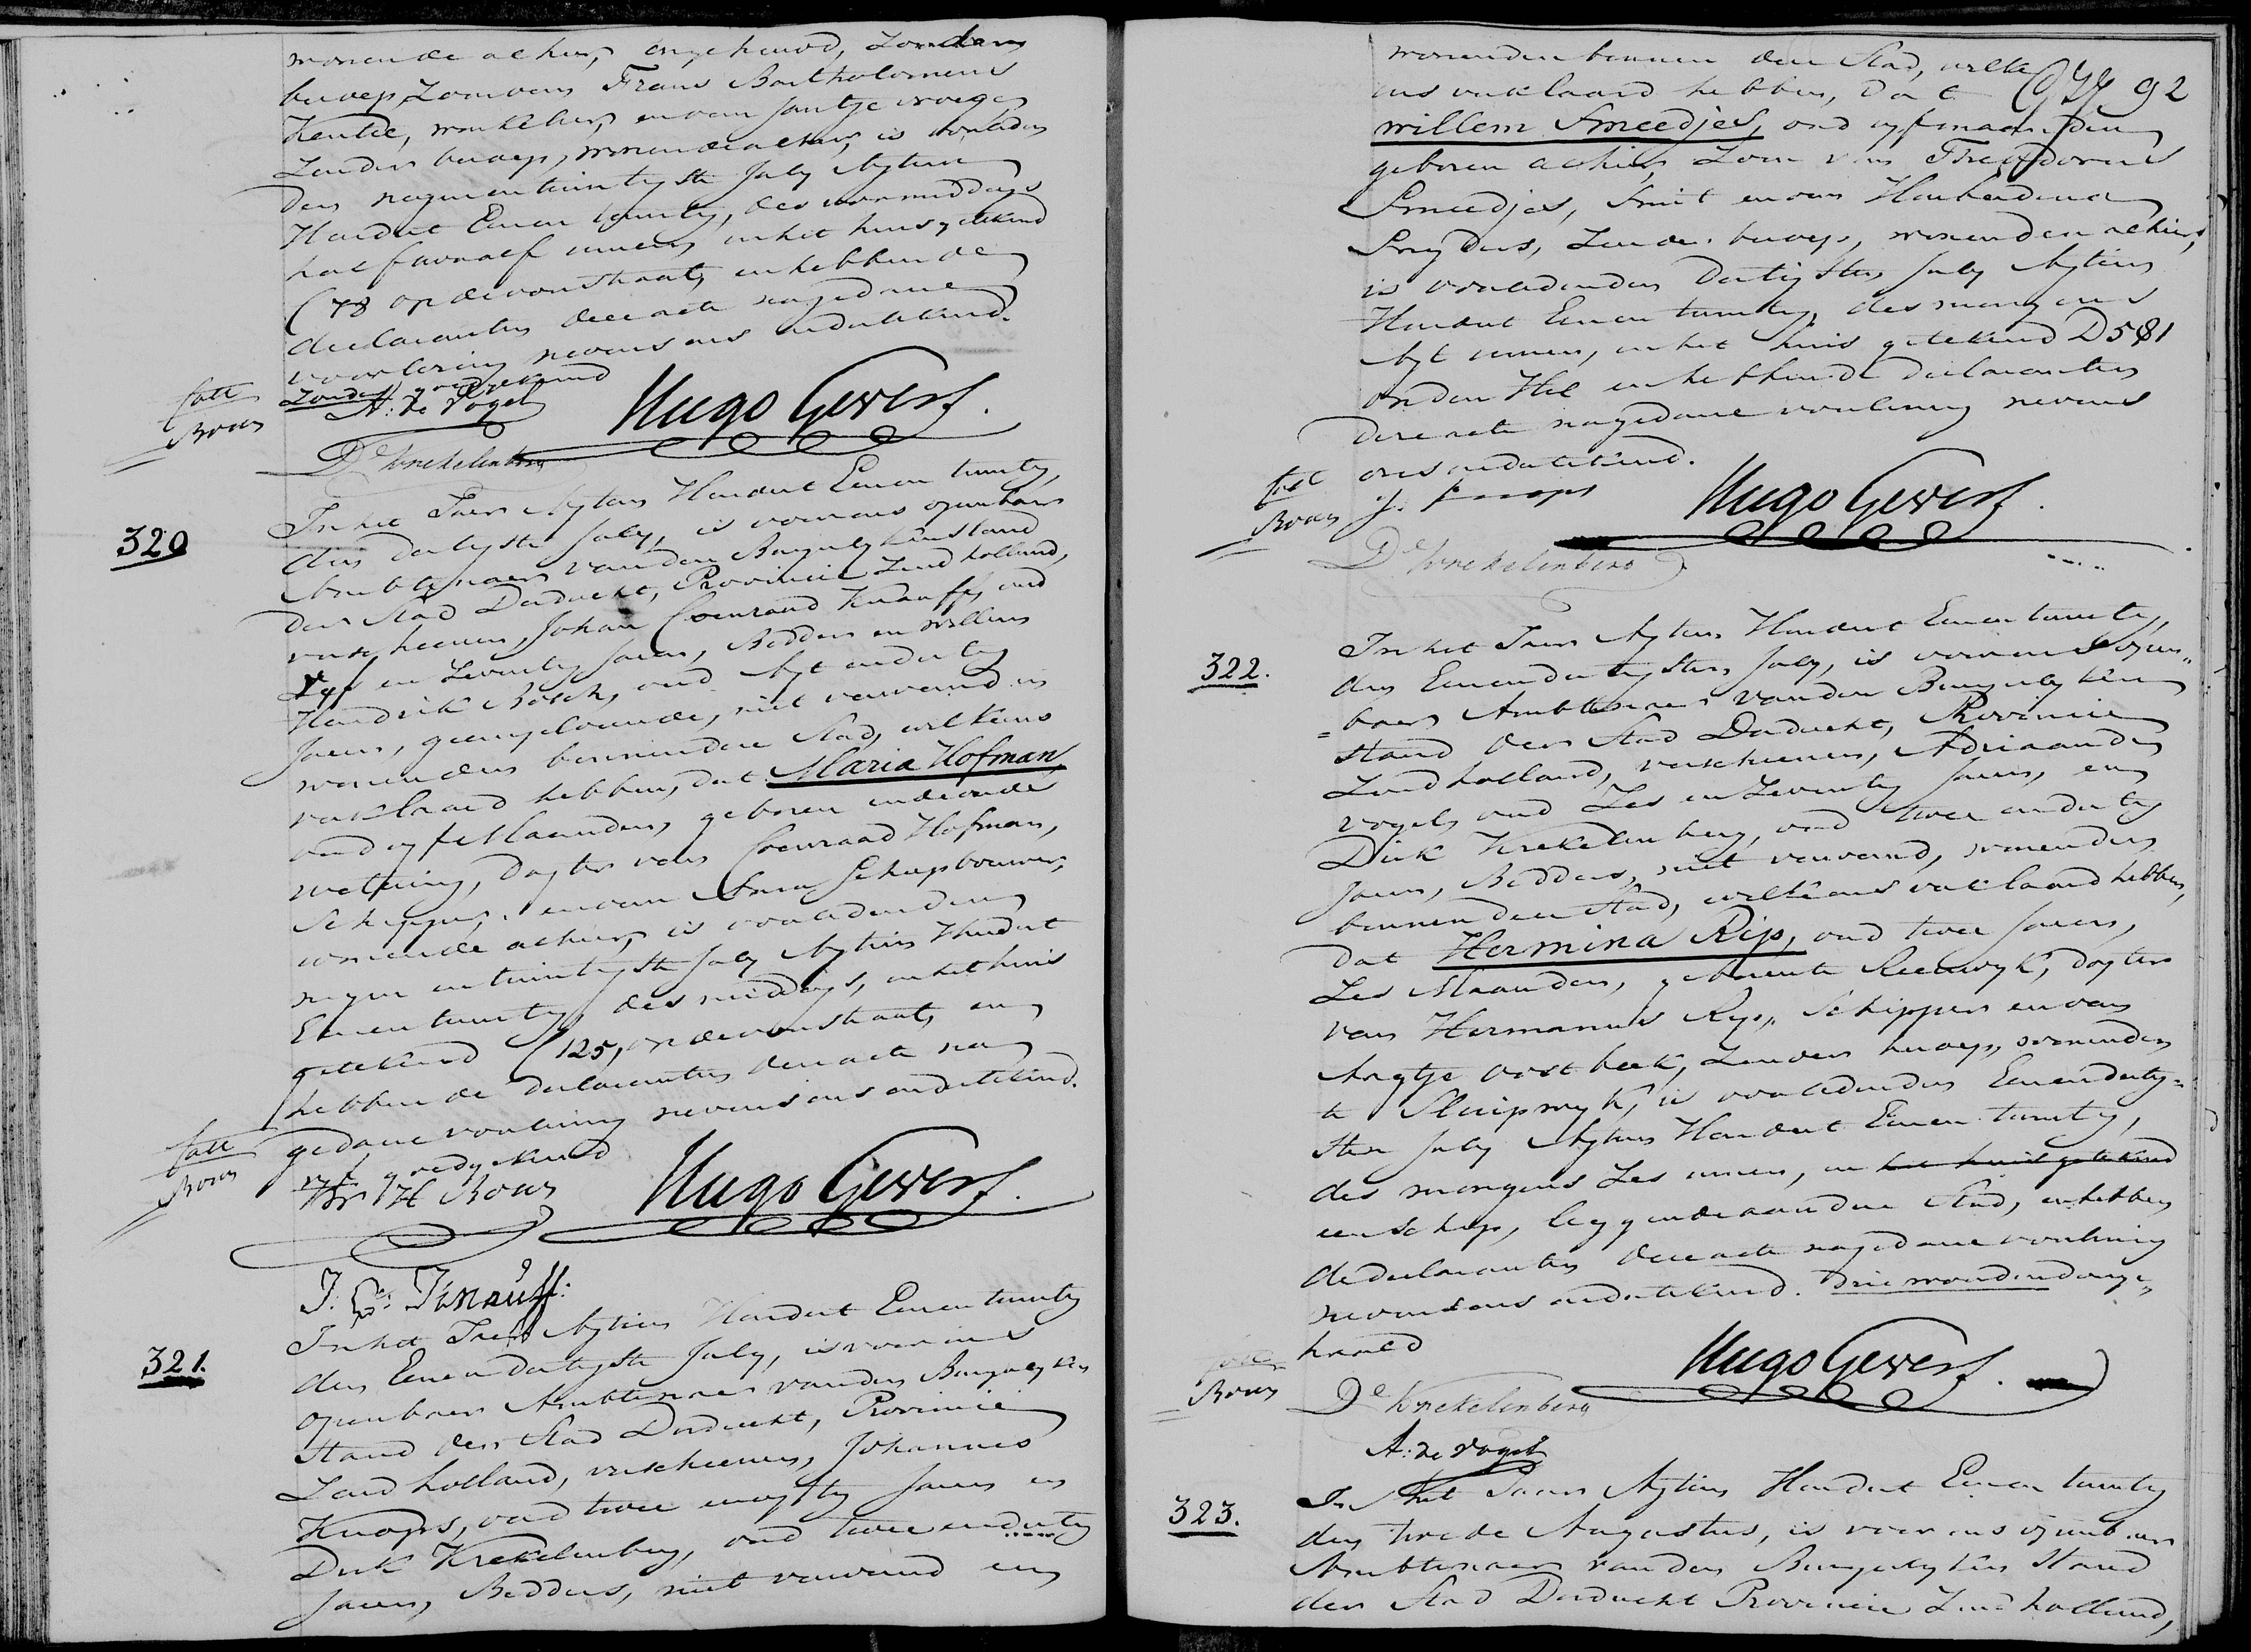 wonende alhier, ongehuwd, Zonder
beroep, Zoon van Frans Bartholomeus
Kentie, winkelier, en van Jantje vroege,
Zonder beroep, wonende alhier, is overleden
den negenentwintigste July Agtien
Hondert Eenen twintig, des voormiddags
half twaalf uuren, in het huis getekend
C 78 op de voorstraat, en hebben de
declaranten deze acte na gedane
voorlezing nevens ons ondertekend.
Zonder goedgekeurd
fatt
Bouw
A: de Vogel
Hugo Gevers.
Dk Krekelenberg
320
In het Jaar Agtien Hondert Eenen twintig,
den dertigste July, is voor ons openbaar
Ambtenaar van den Burgerlyken stand
der Stad Dordrecht, Provincie Zuid holland,
verscheenen, Johan Coenraad Knauff, oud
Vyf en Zeventig Jaren, Bidder en willem
Hendrik Bouw, oud Agt en dertig
Jaren, geemployeerde, niet verwand en
wonenden binnen deze Stad, welke ons
verklaard hebben, dat Maria Hofman,
oud vyf Maanden, geboren in de oude
wetering, Dogter van Coenraad Hofman,
Schipper, en van Anna Schapbouwer,
wonende alhier, is overleden den
negen en twintigste July Agtien Hondert
Eenen twintig, des middags, in het huis
getekend C 125, op de voorstraat, en
hebben de declaranten deze acte na
gedane voorlezing nevens ons ondertekend.
vyf goedgekeurd
fatt
Bouw
Wm H Bouw
Hugo Gevers.
J: C: Knauff:
321.
In het Jaar Agtien Hondert Eenen twintig
den Eenendertigste July, is voor ons
openbaar Ambtenaar van den Burgerlyken
Stand der Stad Dordrecht, Provincie
Zuid holland, verscheenen, Johannes
Knops, oud twee en vyftig Jaren en
Dirk Krekelenberg, oud twee en dertig
Jaren, Bidders, niet verwand en
wonenden binnen deze Stad, welke
ons verklaard hebben, dat
92
willem Smeedjes, oud vyf maanden
geboren alhier, Zoon van Theodorus
Smeedjes, Smit en van
Snyders, Zonder beroep, wonenden alhier,
is overleden den dertigsten July Agtien
Hondert Eenen twintig, des morgens
Agt uuren, in het huis getekend D 581
op den Hil en hebben de declaranten
deze acte na gedane voorlezing nevens
ons ondertekend.
fatt
Bouw
J. Knops
Hugo Gevers.
Dk Krekelenberg
322.
In het Jaar Agtien Hondert Eenen twintig,
den Eenendertigsten July, is voor ons open„
=baar Ambtenaar van den Burgerlyken
stand der Stad Dordrecht, Provincie
Zuid holland, verscheenen, Adriaan de
vogel, oud Zes en Zeventig Jaren, en
Dirk Krekelenberg, oud twee en dertig
Jaren, Bidders, niet verwand, wonenden
binnen deze Stad, welke ons verklaard hebben,
dat Hermina Rip, oud twee Jaren,
Zes Maanden, gemeente Reeuwyk, dogter
van Hermanus Rip, Schipper en van
Angtje Oostbeek, Zonder beroep, wonenden
te Sluipwyk, is overleden den Eenendertig=
sten July Agtien Hondert Eenen twintig,
des morgens Zes uuren, in het huis getekend
een schip, leggende aan deze Stad, en hebben
de declaranten deze acte na gedane voorlezing
nevens ons ondertekend. drie woorden doorge„
haald
Bouw
Hugo Gevers.
Dk Krekelenberg
A: de Vogel
323.
In het Jaar Agtien Hondert Eenen twintig
den twede Augustus, is voor ons openbaar
Ambtenaar van den Burgerlyken Stand
der Stad Dordrecht Provincie Zuid holland,